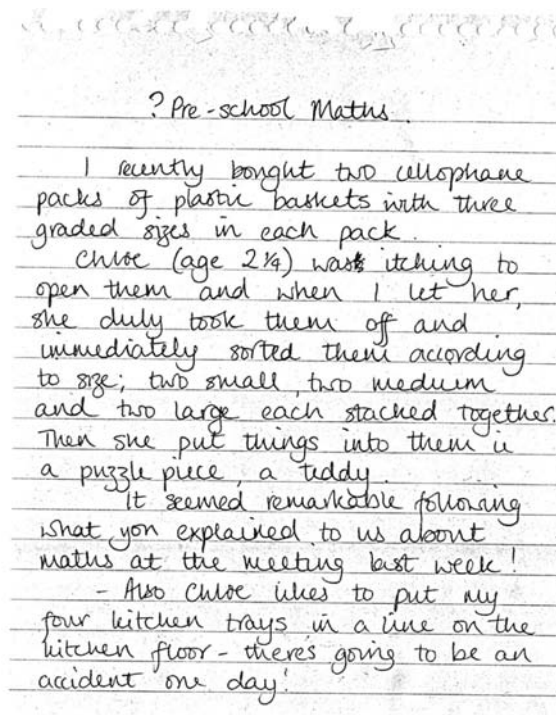 ? Pre-school Maths.
I recently bought two cellophane
packs of plastic baskets with three
graded sizes in each pack.
Chloe (age 2¼) was itching to
open them and when I let her,
she duly took them off and
immediately sorted them according
to size; two small, two medium
and two large each stacked together.
Then she put things into them ie
a puzzle piece, a teddy.
It seemed remarkable following
what you explained to us about
maths at the meeting last week!
- Also Chloe likes to put my
four kitchen trays in a line on the
kitchen floor - there's going to be an
accident one day!